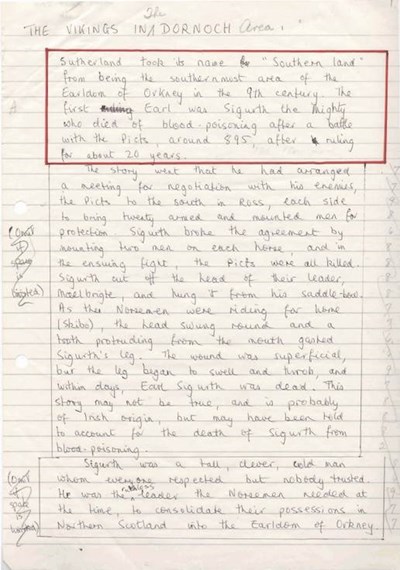 The
THE VIKINGS IN DORNOCH Area.
Sutherland took its name "Southern land"
from being the southernmost area of the
Earldom of Orkney in the 9th century. The
first Earl was Sigurth the Mighty
who died of blood-poisoning after a battle
with the Picts, around 895, after ruling
for about 20 years.
The story went that he had arranged
a meeting for negotiation with his enemies,
the Picts to the south in Ross, each side
to bring twenty armed and mounted men for
protection. Sigurth broke the agreement by
mounting two men on each horse, and in
the ensuing fight, the Picts were all killed.
Sigurth cut off the head of their leader,
Maelbrigte, and hung it from his saddle-bow.
As the Norsemen were riding for home
(Skibo), the head swung round and a
tooth protruding from the mouth gashed
Sigurth's leg. The wound was superficial,
but the leg began to swell and throb, and
within days, Earl Sigurth was dead. This
story may not be true, and is probably
of Irish origin, but may have been told
to account for the death of Sigurth from
blood-poisoning.
(Omit
if
space
limited)
Sigurth was a tall, clever, cold man
whom everyone respected but nobody trusted.
He was the leader the Norsemen needed at
the time, to consolidate their possessions in
Northern Scotland into the Earldom of Orkney.
(Omit
if